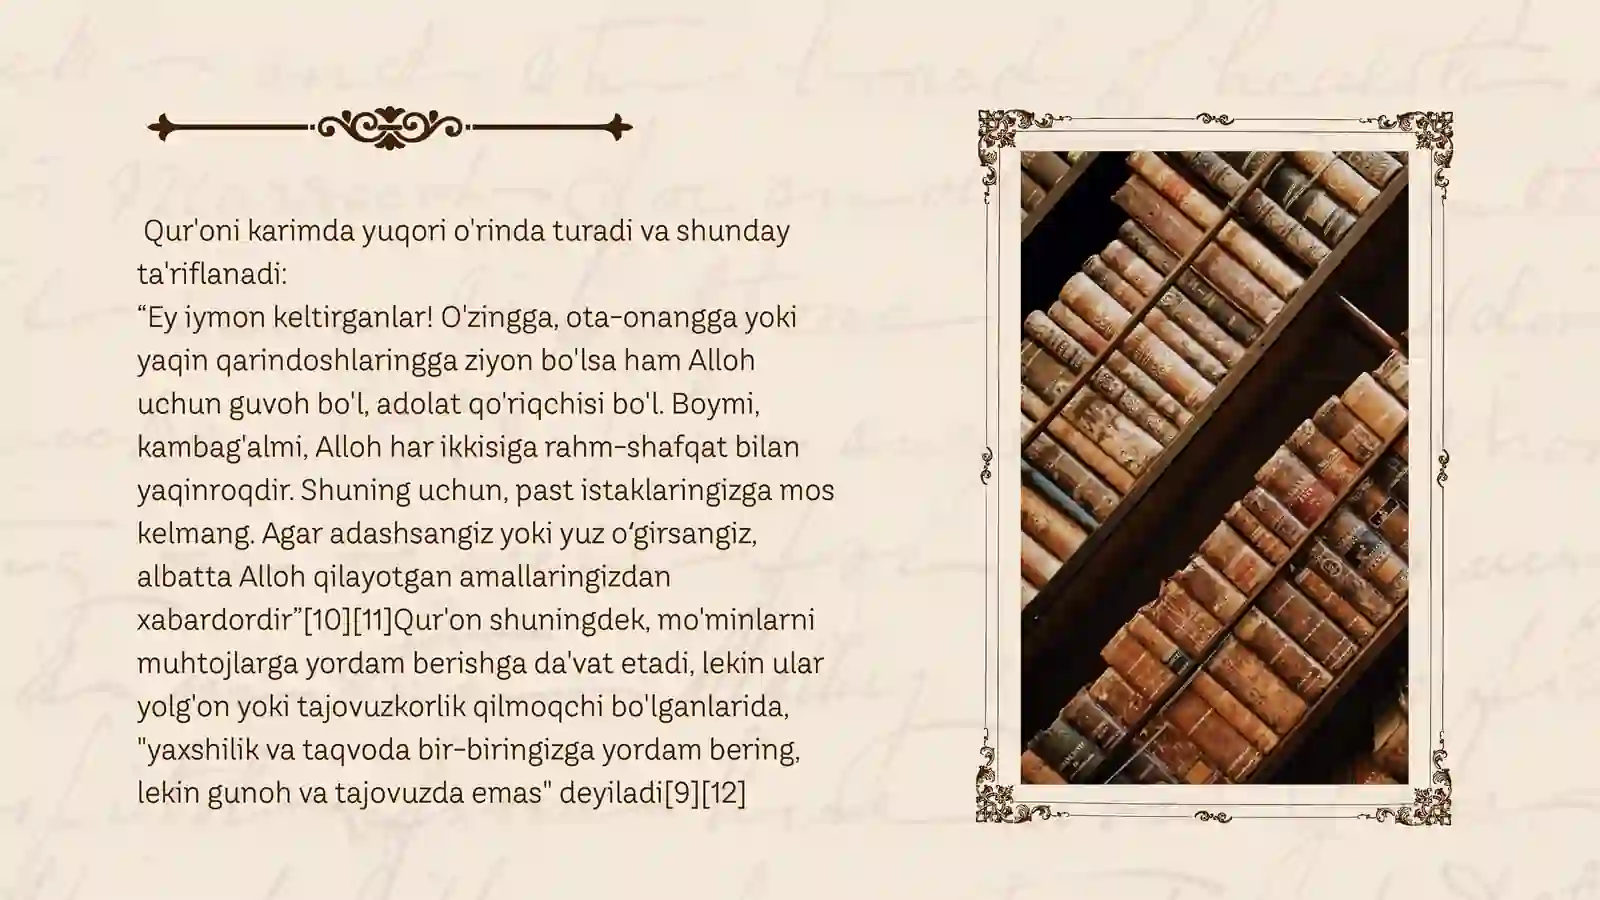 Qur'oni karimda yuqori o'rinda turadi va shunday
ta'riflanadi:
“Ey iymon keltirganlar! O'zingga, ota-onangga yoki
yaqin qarindoshlaringga ziyon bo'lsa ham Alloh
uchun guvoh bo'l, adolat qo'riqchisi bo'l. Boymi,
kambag'almi, Alloh har ikkisiga rahm-shafqat bilan
yaqinroqdir. Shuning uchun, past istaklaringizga mos
kelmang. Agar adashsangiz yoki yuz oʻgirsangiz,
albatta Alloh qilayotgan amallaringizdan
xabardordir”[10][11]Qur'on shuningdek, mo'minlarni
muhtojlarga yordam berishga da'vat etadi, lekin ular
yolg'on yoki tajovuzkorlik qilmoqchi bo'lganlarida,
"yaxshilik va taqvoda bir-biringizga yordam bering,
lekin gunoh va tajovuzda emas" deyiladi[9][12]